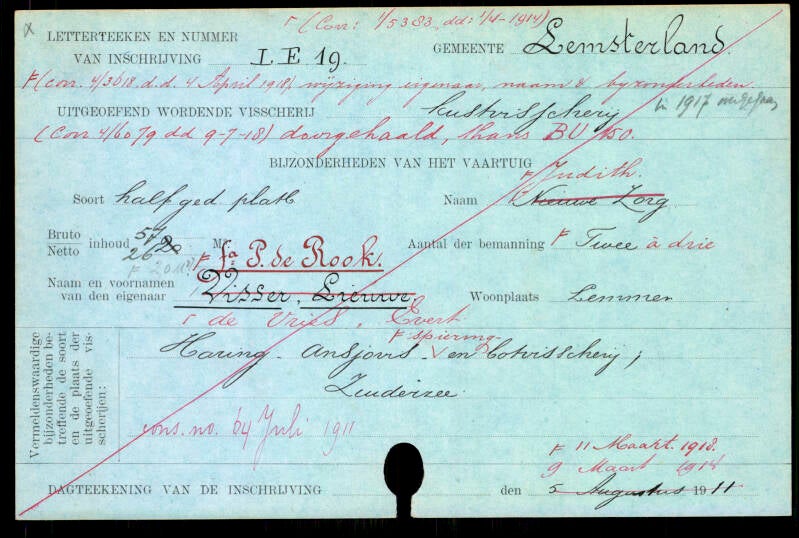 x
F (Corr: 1/5383, dd: 1/4-1914)
LETTERTEEKEN EN NUMMER
VAN INSCHRIJVING LE 19. GEMEENTE Lemsterland.
F (corr. 4/3618 d.d. 4 April 1918) wijziging eigenaar, naam & byzonderheden.
UITGEOEFEND WORDENDE VISSCHERIJ kustvisscherij in 1917
(Corr 4/6079 dd 9-7-18) doorgehaald, thans BU 150.
BIJZONDERHEDEN VAN HET VAARTUIG
F Judith.
Soort half ged platb Naam Nieuwe Zorg
Bruto
Netto inhoud 57
26 M3 Aantal der bemanning F Twee à drie
F fa P. de Rook.
Naam en voornamen
van den eigenaar Visser, Lieuwe, Woonplaats Lemmer
F de Vries, Evert
Vermeldenswaardige
bijzonderheden be-
treffende de soort
en de plaats der
uitgeoefende vis-
scherijen:
F spiering-
Haring- Ansjovis- en botvisscherij;
Zuiderzee
cons. no. 64 Juli 1911
F 11 Maart 1918.
9 Maart 1914
DAGTEEKENING VAN DE INSCHRIJVING den 5 Augustus 1911